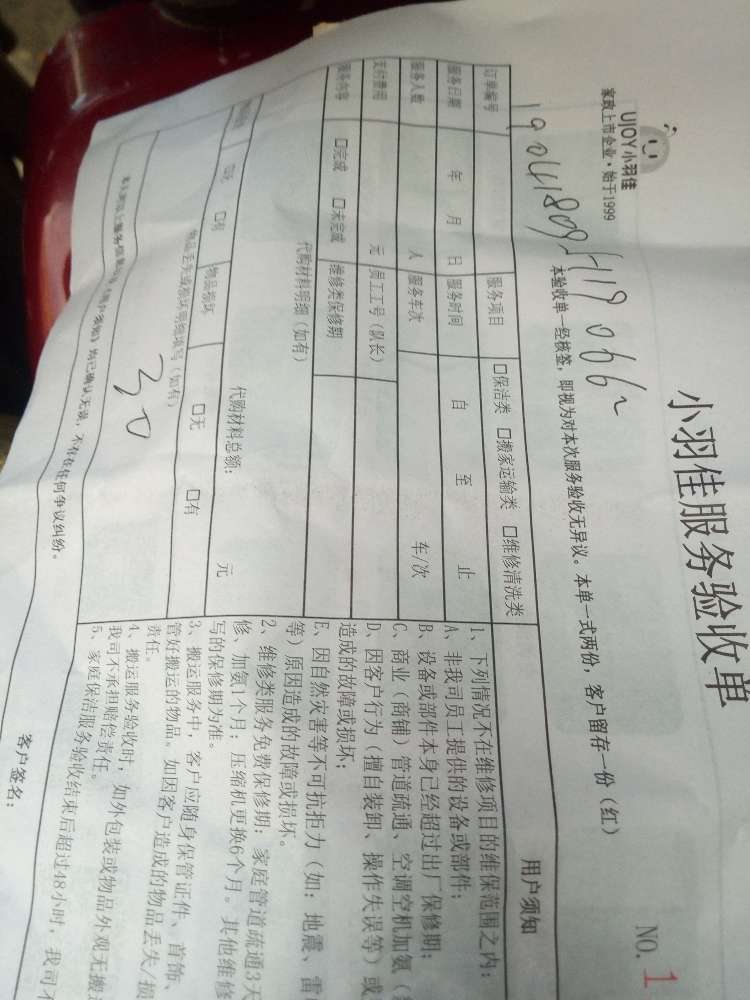 小羽佳服务验收单
UJOY小羽佳
家政上市企业·始于1999
NO. 1
本验收单一经核签，即视为对本次服务验收无异议。本单一式两份，客户留存一份（红）
订单编号 服务项目 □保洁类 □搬家运输类 □维修清洗类
服务日期 年 月 日 服务时间 自 至 止
服务人数 人 服务车次 车/次
支付费用 元 员工工号（队长）
服务内容 □完成 □未完成 维修类保修期
代购材料明细（如有）
代购材料总额： 元
□无 □有 物品损坏 □无 □有
物品丢失或损坏明细填写（如有）
30
用户须知
1、下列情况不在维修项目的维保范围之内：
A、非我司员工提供的设备或部件；
B、设备或部件本身已经超过出厂保修期；
C、商业（商铺）管道疏通、空调空机加氨（
D、因客户行为（擅自装卸、操作失误等）或
造成的故障或损坏；
E、因自然灾害等不可抗拒力（如：地震、雷
等）原因造成的故障或损坏。
2、维修类服务免费保修期：家庭管道疏通3天
修、加氨1个月；压缩机更换6个月。其他维修
写的保修期为准。
3、搬运服务中，客户应随身保管证件、首饰、
管好搬运的物品。如因客户造成的物品丢失/损
责任。
4、搬运服务验收时，如外包装或物品外观无
我司不承担赔偿责任。
5、家庭保洁服务验收结束后超过48小时，我司不
均已确认无误，不存在任何争议纠纷。
客户签名：